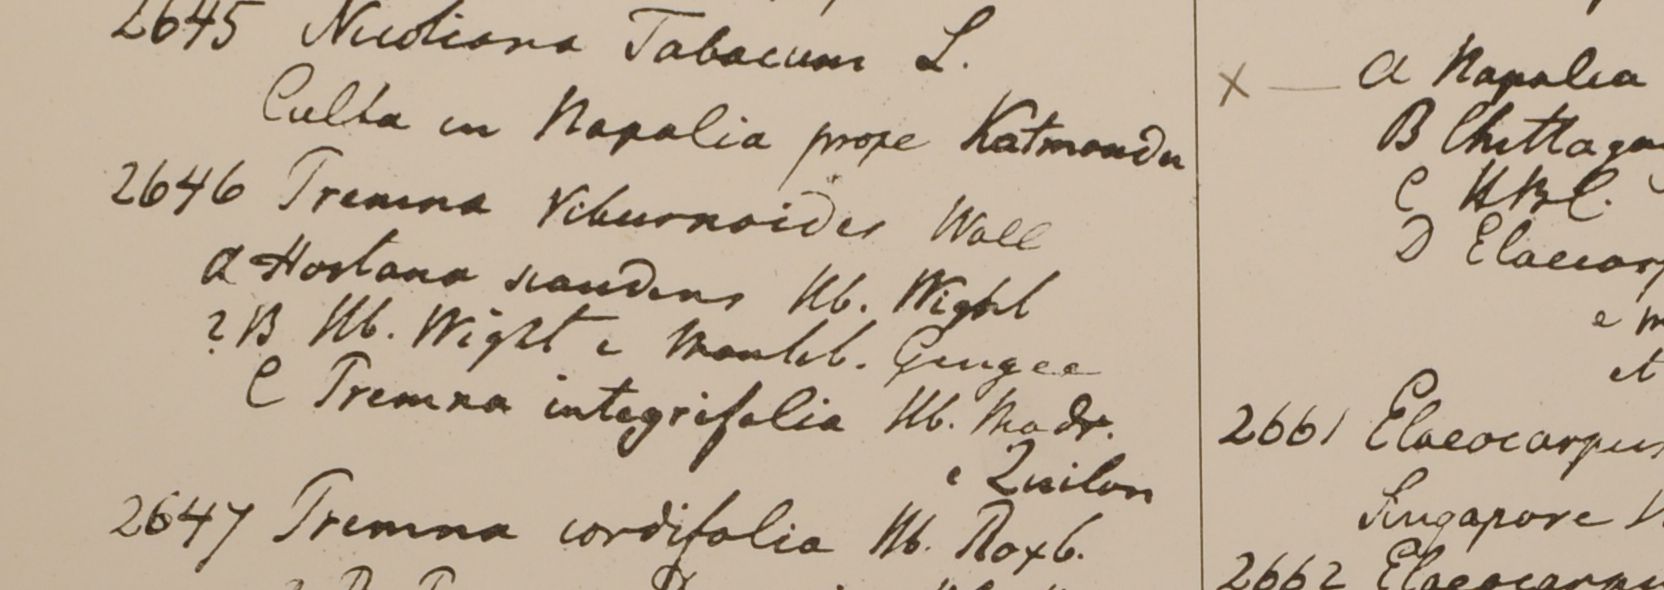 2645 Nicotiana Tabacum L.
Culta in Napalia prope Katmandu
2646 Premna Viburnoides Wall
a Hortana scandens Hb. Wight
? B Hb. Wight e Gingee
C Premna integrifolia Hb. Madr.
e Quilon
2647 Premna cordifolia Hb. Roxb.
X — a Napalia
B Chittago
C HBC.
D Elaeocarp
e m
et
2661 Elaeocarpus
Singapore
2662 Elaeocarpu